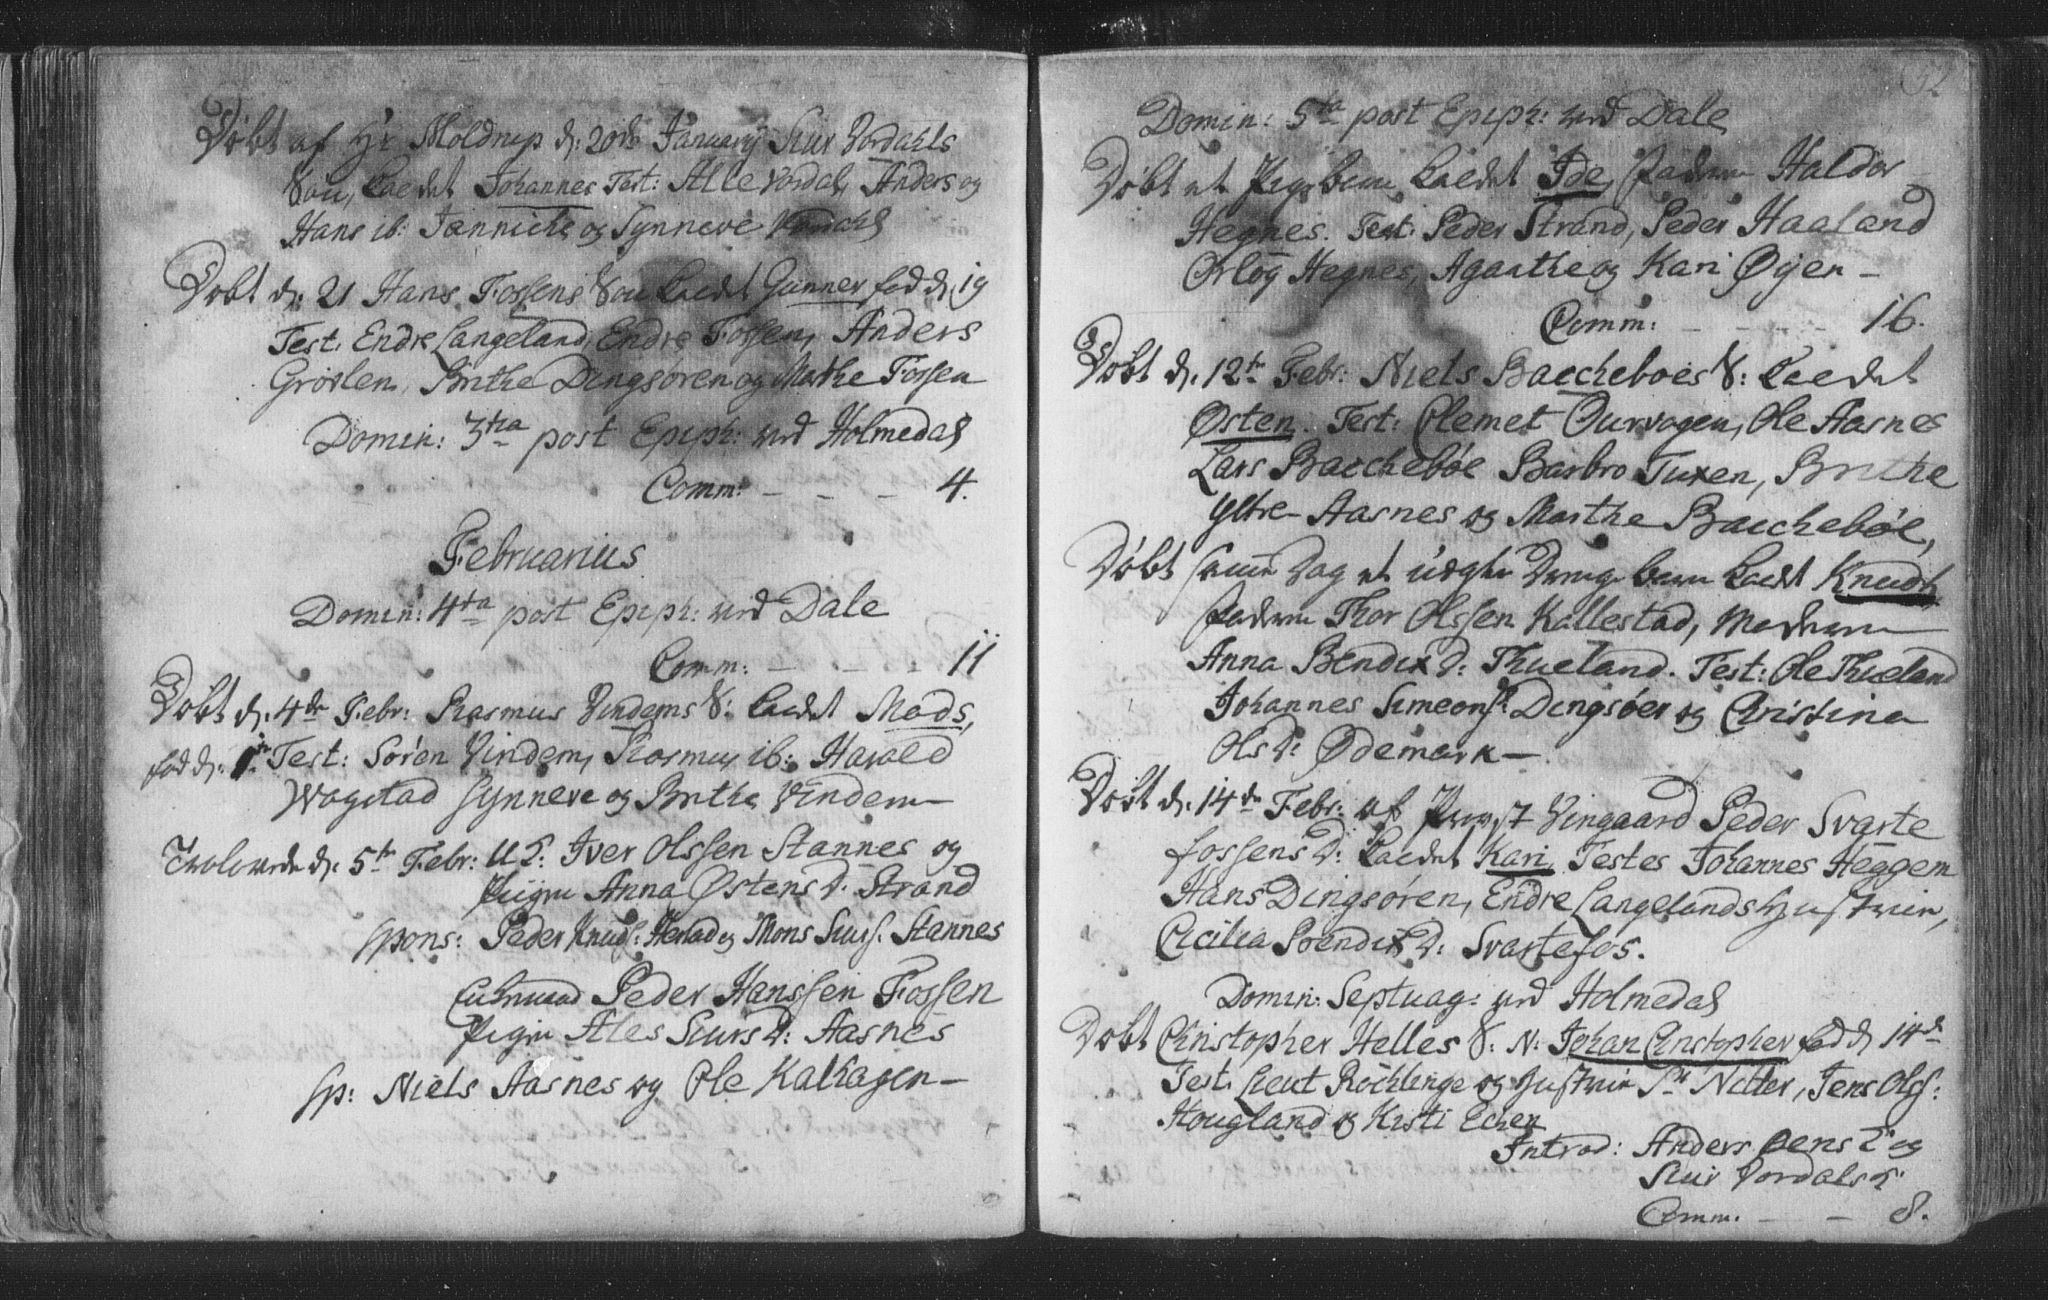 Døbt af Hr Moldrup d: 20de Januarij Siur Vordahls
Søn, kaldet Johannes Test: Alle Vordal, Anders og
Hans ib: Jannicke og Synneve Vordahl
Døbt d. 21 Hans Fossens Søn kaldet Gunner fød d. 19
Test: Endre Langeland, Endre Fossen, Anders
Grøvlen, Brithe Dingsøren og Mathe Fossen
Domin: 3tia post Epiph: ved Holmedal
Comm: - - - 4.
Februarius
Domin: 4ta post Epiph: ved Dale
Comm: - - - 11
Døbt d. 4de Febr: Rasmus Vindems S: kaldet Mads,
fød d. 1ste Test: Søren Vindem, Rasmus ib: Harald
Wagstad Synneve og Brithe Vindem
Trolovede d. 5te Febr: U K: Iver Olssen Stannes og
Pigen Anna Østens D. Strand
spons: Peder Knuds: Herlad og Mons Siurs: Stannes
Peder Hanssen Fossen
Pigen Ales Siurs D: Aasnes
sp: Niels Aasnes og Ole Kalhagen -
52
Domin: 5ta post Epiph: ved Dale
Døbt et Pigebarn kaldet Ide, Faderen Haldor
Hegnes. Test: Peder Strand, Peder Haaland
Orlög Hegnes, Agarthe og Kari Øyen -
Comm: - - - 16.
Døbt d. 12te Febr: Niels Baccheboes S: kaldet
Østen. Test: Clemet Ourvogen, Ole Aasnes
Lars Bacchebøe Barbro Tuxen, Brithe
Ytre Aasnes og Marthe Bacchebøe,
Døbt samme Dag et uægte Drengebarn kaldt Knudt,
Faderen Thor Olssen Kallestad, Moderen
Anna Bendix D: Thueland. Test: Ole Thueland
Johannes Simeons: Dingsøer og Christina
Ols D: Ødemark -
Døbt d. 14de Febr: af Provst Vingaard Peder Svarte
fossens D: kaldet Kari Testes Johannes Heggem
Hans Dingsøren, Endre Langelands Hustrue,
Cicilia Boendix D: Svartefos.
Domin: Septuag: ved Holmedal
Døbt Christopher Helles S: N: Johan Christopher fød d 14de
Test: Lieut Röchlinge og Hustrue Sr Nitter, Jens Olss:
Hougland og Kirsti Echen
Introd: Anders Oens K. og
Siur Vordals K.
Comm. - - 8.